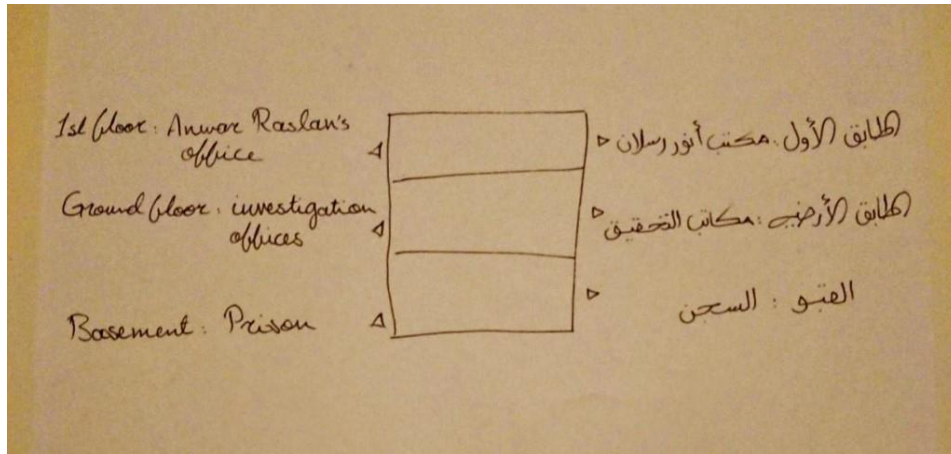 1st floor: Anwar Raslan's
office
Ground floor: investigation
offices
Basement: Prison
الطابق الأول: مكتب أنور رسلان
الطابق الأرضي: مكاتب التحقيق
القبو: السجن